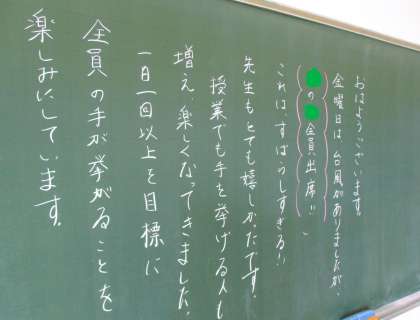 おはようございます。
金曜日は台風がありましたが、
の 全員出席!!
これは、すばらしすぎる!!
先生もとても嬉しかったです。
授業でも手を挙げる人も
増え、楽しくなってきました。
一日一回以上を目標に
全員の手が挙がることを
楽しみにしています。